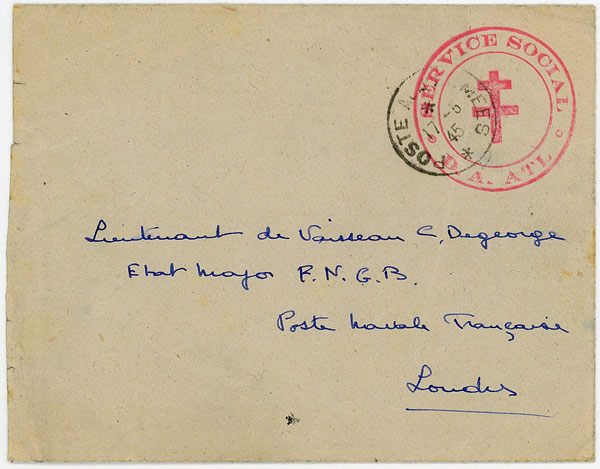 SERVICE SOCIAL
D. A. ATL.
POSTE A MEES
45
Lieutenant de Vaisseau C. Degeorge
Etat Major F. N. G. B.
Poste Navale Française
Londres